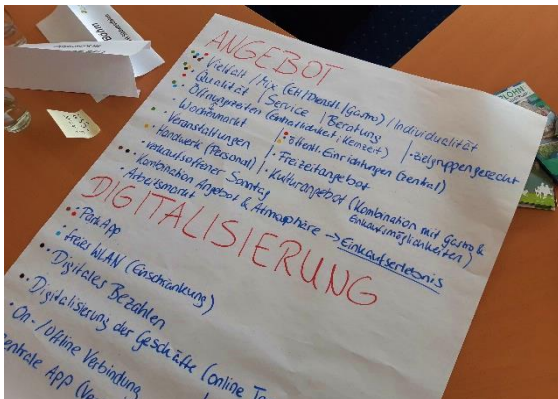 ANGEBOT
· Vielfalt / Mix (EH/Dienstl./Gastro) / Individualität
· Qualität | Service | Beratung | · zielgruppengerecht
· Öffnungszeiten (Einheitlichkeit, Kernzeit)
· Wochenmarkt | · öffentl. Einrichtungen (zentral)
· Veranstaltungen | · Freizeitangebot
· Handwerk (Personal) | · Kulturangebot (Kombination mit Gastro & Einkaufsmöglichkeiten)
· verkaufsoffener Sonntag
· Kombination Angebot & Atmosphäre → Einkaufserlebnis
· Arbeitsmarkt
DIGITALISIERUNG
· Park App
· freies WLAN (Einschränkung)
· Digitales Bezahlen
· Digitalisierung der Geschäfte (online
· On-/Offline Verbindung
zentrale App
Böhm